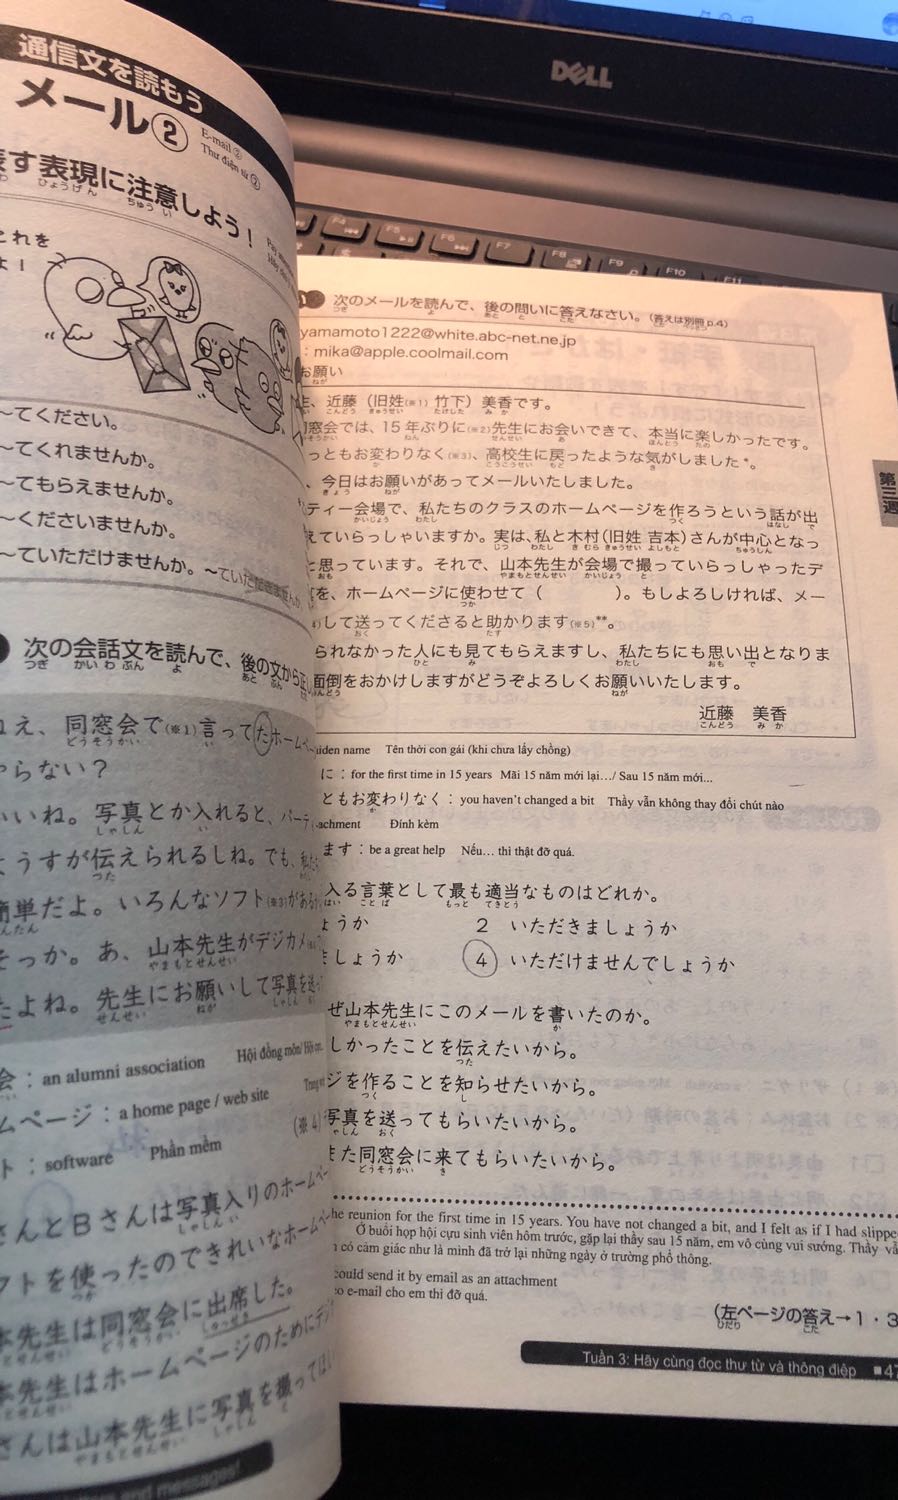 DELL
F4
F5
F6
F7
F8
F9
F10
F11
通信文を読もう
メール②
E-mail ②
Thư điện tử ②
す表現に注意しよう！
これを
よ！
～てください。
～てくれませんか。
～てもらえませんか。
～くださいませんか。
～ていただけませんか。～ていただきませんか
次の会話文を読んで、後の文から正し
ねえ、同窓会で(※1)言ってたホームペ
からない？
いいね。写真とか入れると、パーティ
ようすが伝えられるしね。でも、私た
簡単だよ。いろんなソフト(※3)がある
そっか。あ、山本先生がデジカメ
たよね。先生にお願いして写真を送っ
会：an alumni association Hội đồng môn/ Hội
ムページ：a home page / web site Trang
ト：software Phần mềm (※4)
さんとBさんは写真入りのホームペー
フトを使ったのできれいなホームペー
本先生は同窓会に出席した。
本先生はホームページのためにデジ
さんは山本先生に写真を撮ってほし
and messages!
次のメールを読んで、後の問いに答えなさい。(答えは別冊p.4)
yamamoto1222@white.abc-net.ne.jp
: mika@apple.coolmail.com
お願い
、近藤（旧姓(※1) 竹下）美香です。
窓会では、15年ぶりに(※2)先生にお会いできて、本当に楽しかったです。
っともお変わりなく(※3)、高校生に戻ったような気がしました*。
、今日はお願いがあってメールいたしました。
ティー会場で、私たちのクラスのホームページを作ろうという話が出
えていらっしゃいますか。実は、私と木村(旧姓 吉本)さんが中心となっ
と思っています。それで、山本先生が会場で撮っていらっしゃったデ
を、ホームページに使わせて（　　　）。もしよろしければ、メー
して送ってくださると助かります(※5)**。
られなかった人にも見てもらえますし、私たちにも思い出となりま
面倒をおかけしますがどうぞよろしくお願いいたします。
近藤　美香
iden name Tên thời con gái (khi chưa lấy chồng)
に：for the first time in 15 years Mãi 15 năm mới lại.../ Sau 15 năm mới...
ともお変わりなく：you haven't changed a bit Thầy vẫn không thay đổi chút nào
achment Đính kèm
ます：be a great help Nếu... thì thật đỡ quá.
入る言葉として最も適当なものはどれか。
ょうか　2　いただきましょうか
ましょうか　4　いただけませんでしょうか
ぜ山本先生にこのメールを書いたのか。
しかったことを伝えたいから。
ジを作ることを知らせたいから。
写真を送ってもらいたいから。
また同窓会に来てもらいたいから。
he reunion for the first time in 15 years. You have not changed a bit, and I felt as if I had slippe
Ở buổi họp hội cựu sinh viên hôm trước, gặp lại thầy sau 15 năm, em vô cùng vui sướng. Thầy
có cảm giác như là mình đã trở lại những ngày ở trường phổ thông.
could send it by email as an attachment
eo e-mail cho em thì đỡ quá.
(左ページの答え→1・3
Tuần 3: Hãy cùng đọc thư từ và thông điệp ■47
第三週